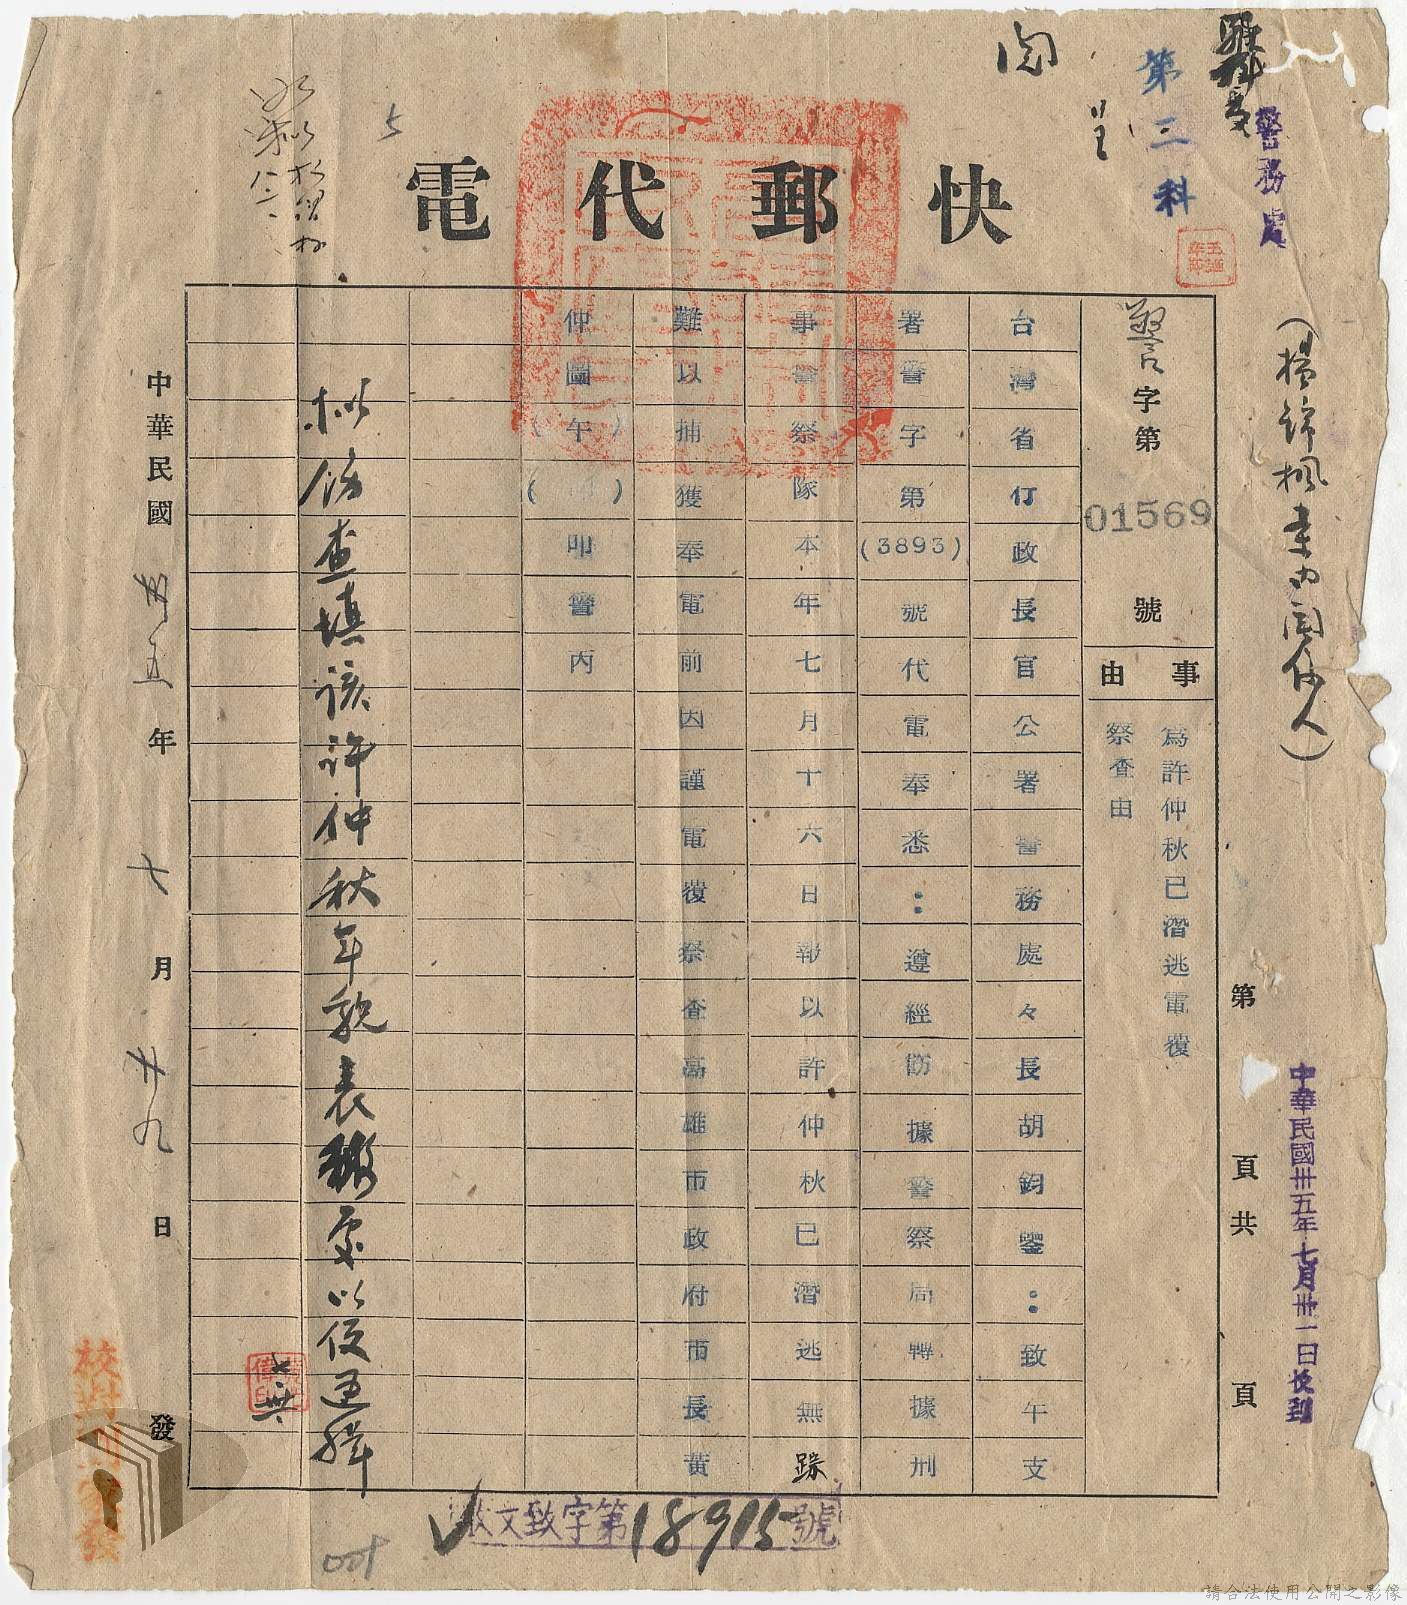 快郵代電
警務處
第三科
閱
呈
(楊錦楓案內關係人)
警字第01569號
事由
為許仲秋已潛逃電覆
祭查由
台灣省行政長官公署警務處々長胡鈞鑒：致午支
署警字第(3893)號代電奉悉：遵經飭據警察局轉據刑
事警察隊本年七月十六日報以許仲秋已潛逃無踪
難以捕獲奉電前因謹電覆祭查高雄市政府市長黃
仲圖午( )叩警丙
擬飭查填該許仲秋年貌表報處以便通緝
中華民國卅五年七月廿九日發
第 頁共 頁
中華民國卅五年七月卅一日收到
收文致字第18915號
校對
請合法使用公開之影像